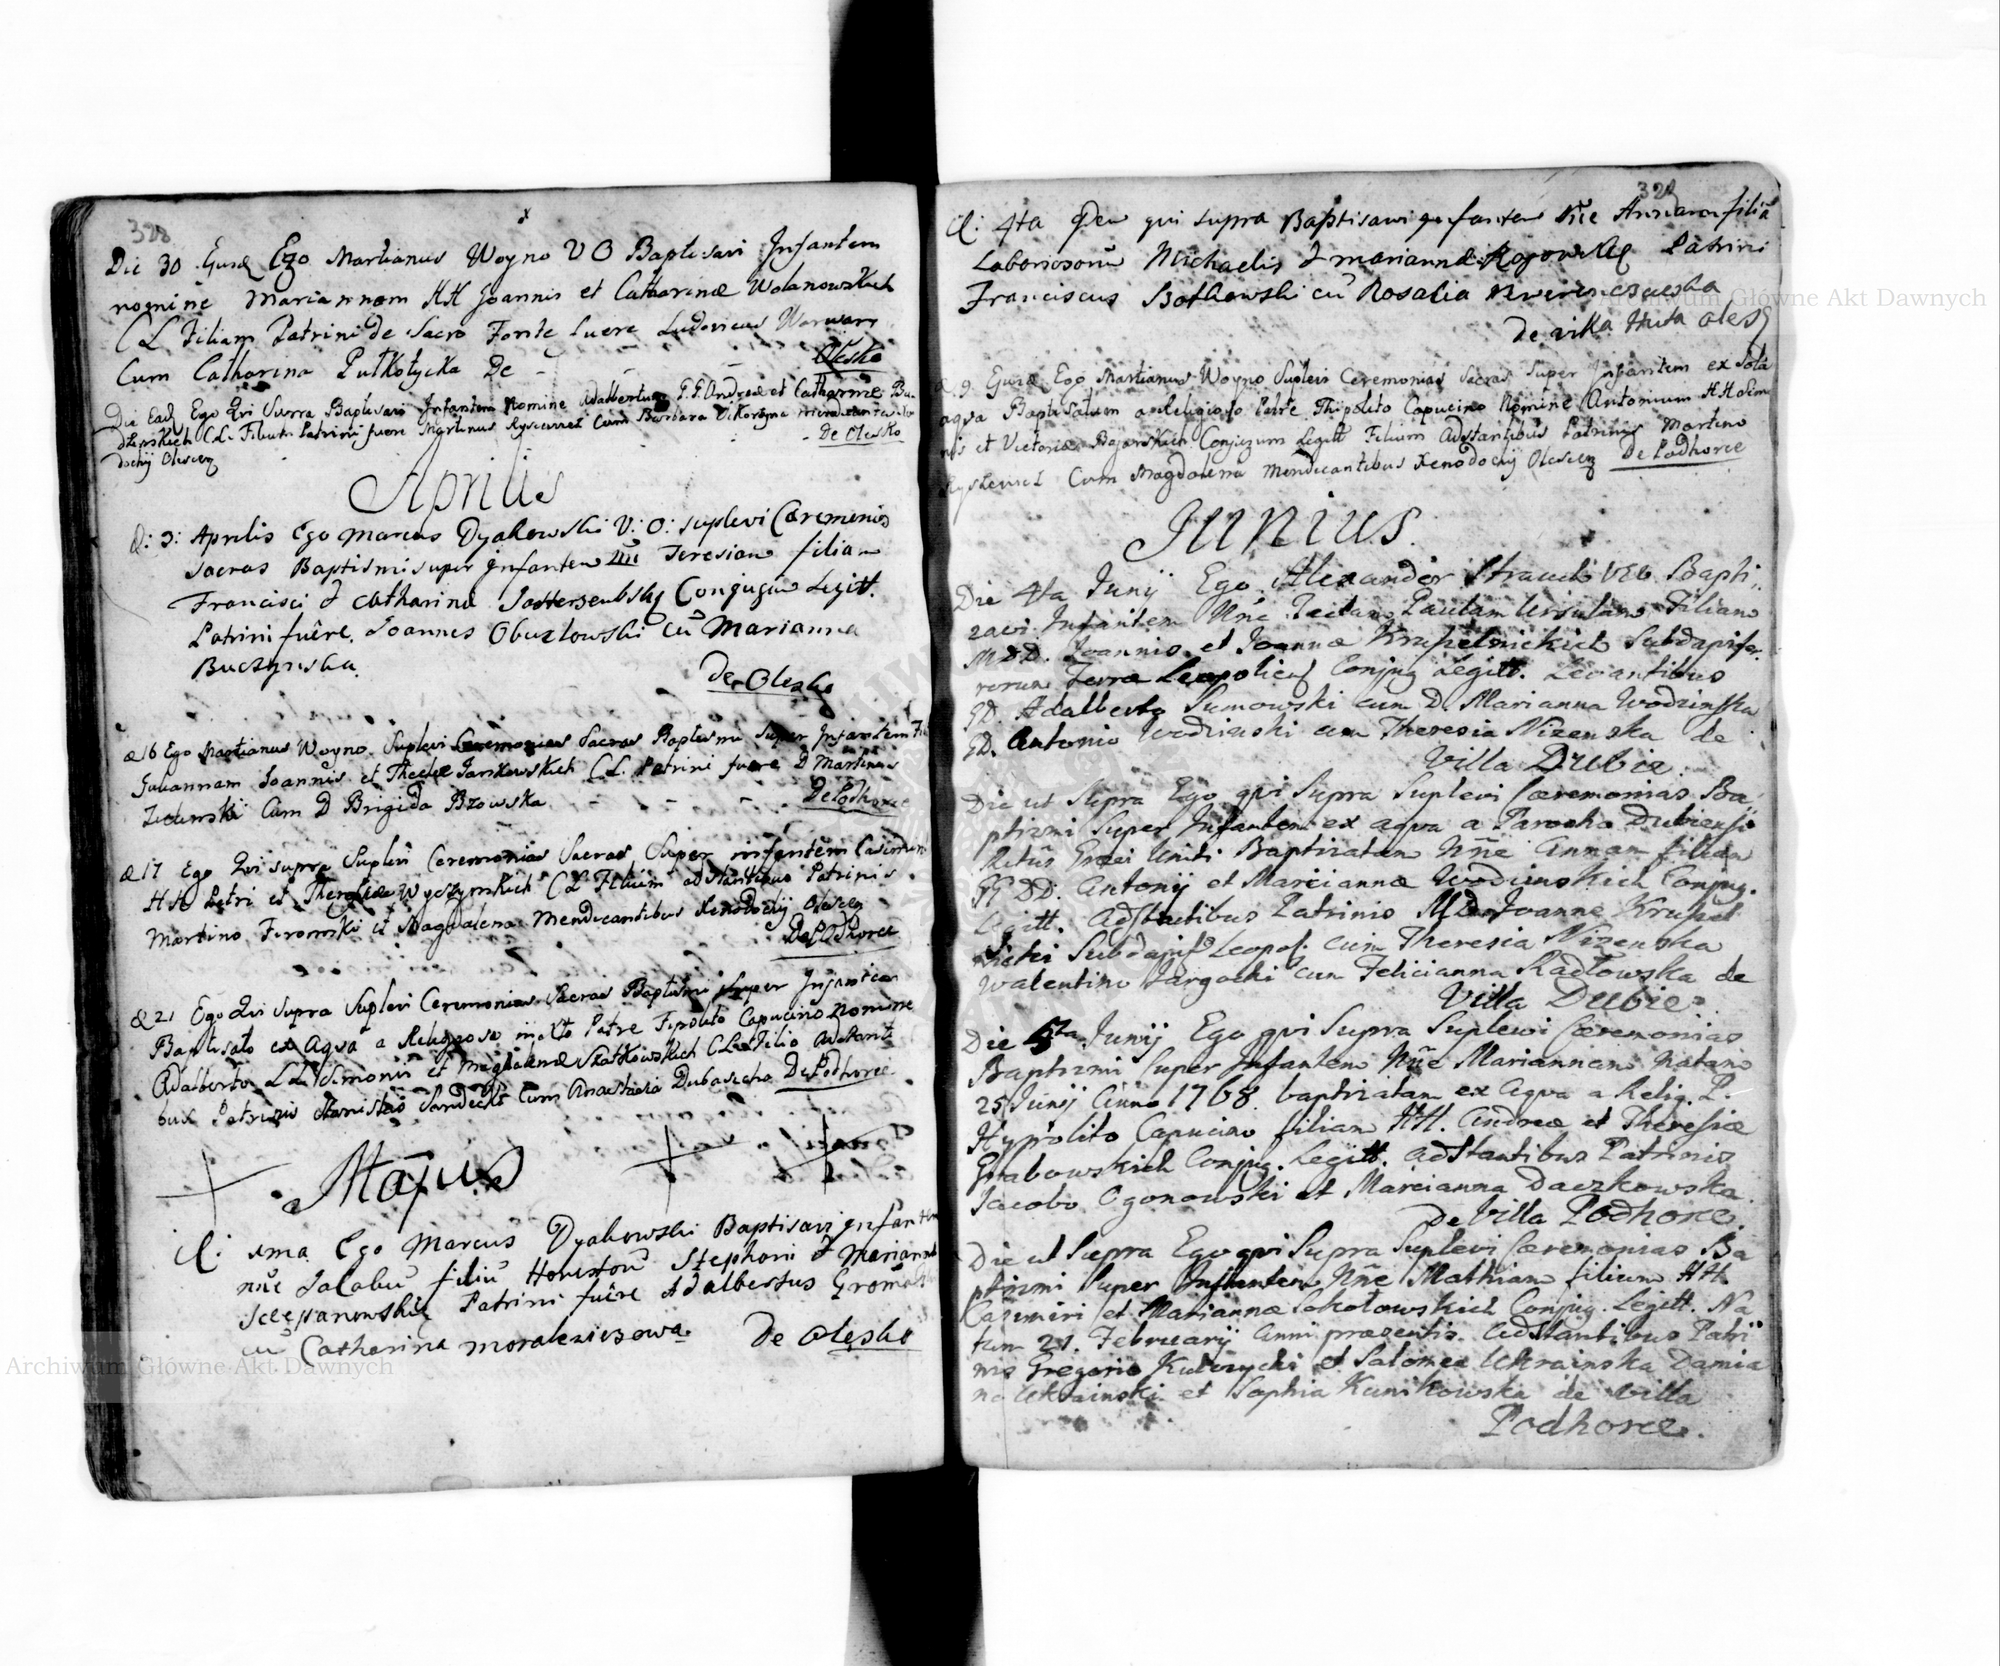 328
Die 30 Ejusd Ego Martianus Woyno V O Baptisavi Infantem
nomine Mariannam HH Joannis et Catharinæ Wolanowskich
CL Filiam Patrini de Sacro Fonte fuere Ludovicus Warwary
Cum Catharina Putkotycka De - - -
Olesko
Die Ead Ego Qvi Supra Baptisavi Infantem Nomine Adalbertum F.F. Andreæ et Catharinæ
CL. Filium Patrini fuere Martinus Cum Barbara
dochij Olescen De Olesko
Aprilis
d: 3: Aprilis Ego Marcus Dyakowski V: O: suplevi Cæremonias
sacras Baptismi super infantem Teresiam filiam
Francisci & Catharinæ Conjugum Legitt.
Patrini fuêre. Joannes Obuzlowski cũ Marianna
Buczynska.
De Olesko
d 16 Ego Martianus Woyno Suplevi Ceremonias Sacras Baptismi Super Infantem
Juliannam Joannis et Theclæ Jankowskich CL. Patrini fuere D Martinus
Cum D Brigida Bzowska - - - De Podhorce
d 17 Ego Qvi supra Suplevi Ceremonias Sacras Super infantem
HH Petri et Theresiæ Wyczynskich CL Filium adstantibus Patrinis
Martino et Magdalena Mendicantibus Xenodochij Olescen
De Podhorce
d 21 Ego Qvi Supra Suplevi Ceremonias Sacras Baptismi super Infantem
Baptisato ex Aqva a Religioso Patre Capucino nomine
Adalberto LL Simonis et Magdalenæ Skotkowskich CL Filio Adstanti
bus Patrinis Cum Anastasia De Podhorce
Majus
d: 1ma Ego Marcus Dyakowski Baptisavi infantem
nñe Jalabũ filiũ Honestorũ Stephani & Mariannæ
Patrini fuêre Adalbertus
cũ Catharina De Olesko
d: 4ta Idem qui supra Baptisavi infantem Nñe Annam filiã
Laboriosorũ Michaelis & mariannæ Patrini
Franciscus Botkowski cũ Rosalia
de villa Huta Oles
d. 9. Ejusd Ego Martianus Woyno Suplevi Ceremonias Sacras Super Infantem ex Sola
aqva Baptisatum a Religioso Patre Capucino Nomine Antonium HH Simo
nis et Victoriæ Bajarskich Conjugum Legitt Filium Adstantibus Patrinis Martino
Cum Magdalena Mendicantibus Xenodochij Olescen De Podhorce
Junius.
Die 4ta Junij Ego Alexander Baptis
zavi Infantem Nñe Paulam Ursulam Filiam
MDD. Joannis et Joannæ Krupelnickich Subdapife
rorum Terræ Leopolien Conjug Legitt. Levantibus
GD. Adalberto Sumowski cum D. Marianna Wodzinska
GD. Antonio Wodzinski cum Theresia Nizenska de
Villa Dubie.
Die ut Supra Ego qvi Supra Suplevi Cæremonias Ba
ptizmi Super Infantem ex aqva a Parocho Dubiensi
Ritus Græci Uniti Baptizatam Nñe Annam filiam
GG DD. Antonij et Mariannæ Wodzinskich Conjug.
Legitt. adstantibus Patrinis MD. Joanne Krupel
nicki Subdapif Leopol. cum Theresia Nizenska
Walentino Jargocki cum Felicianna Radłowska de
Villa Dubie.
Die 5ta Junij Ego qvi Supra Suplevi Cæremonias
Baptizmi Super Infantem Nñe Mariannam Natam
25 Junij Anno 1768 baptizatam ex Aqva a Relig. P.
Hypolito Capucino filiam HH. Andreæ et Theresiæ
Grabowskich Conjug. Legitt. adstantibus Patrinis
Jacobo Ogonowski et Marcianna Daczkowska
de Villa Podhorce.
Die ut Supra Ego qvi Supra Suplevi Cæremonias Ba
ptizmi Super Infantem Nñe Mathiam filium HH
Casimiri et Mariannæ Sokołowskich Conjug. Legitt. Na
tum 21. Februarij Anni præsentis. adstantibus Patri
nis Gregorio et Salomea Ukrainska Damia
no Ukrainski et Sophia Kunikowska de villa
Podhorce.
Archiwum Główne Akt Dawnych
Archiwum Główne Akt Dawnych